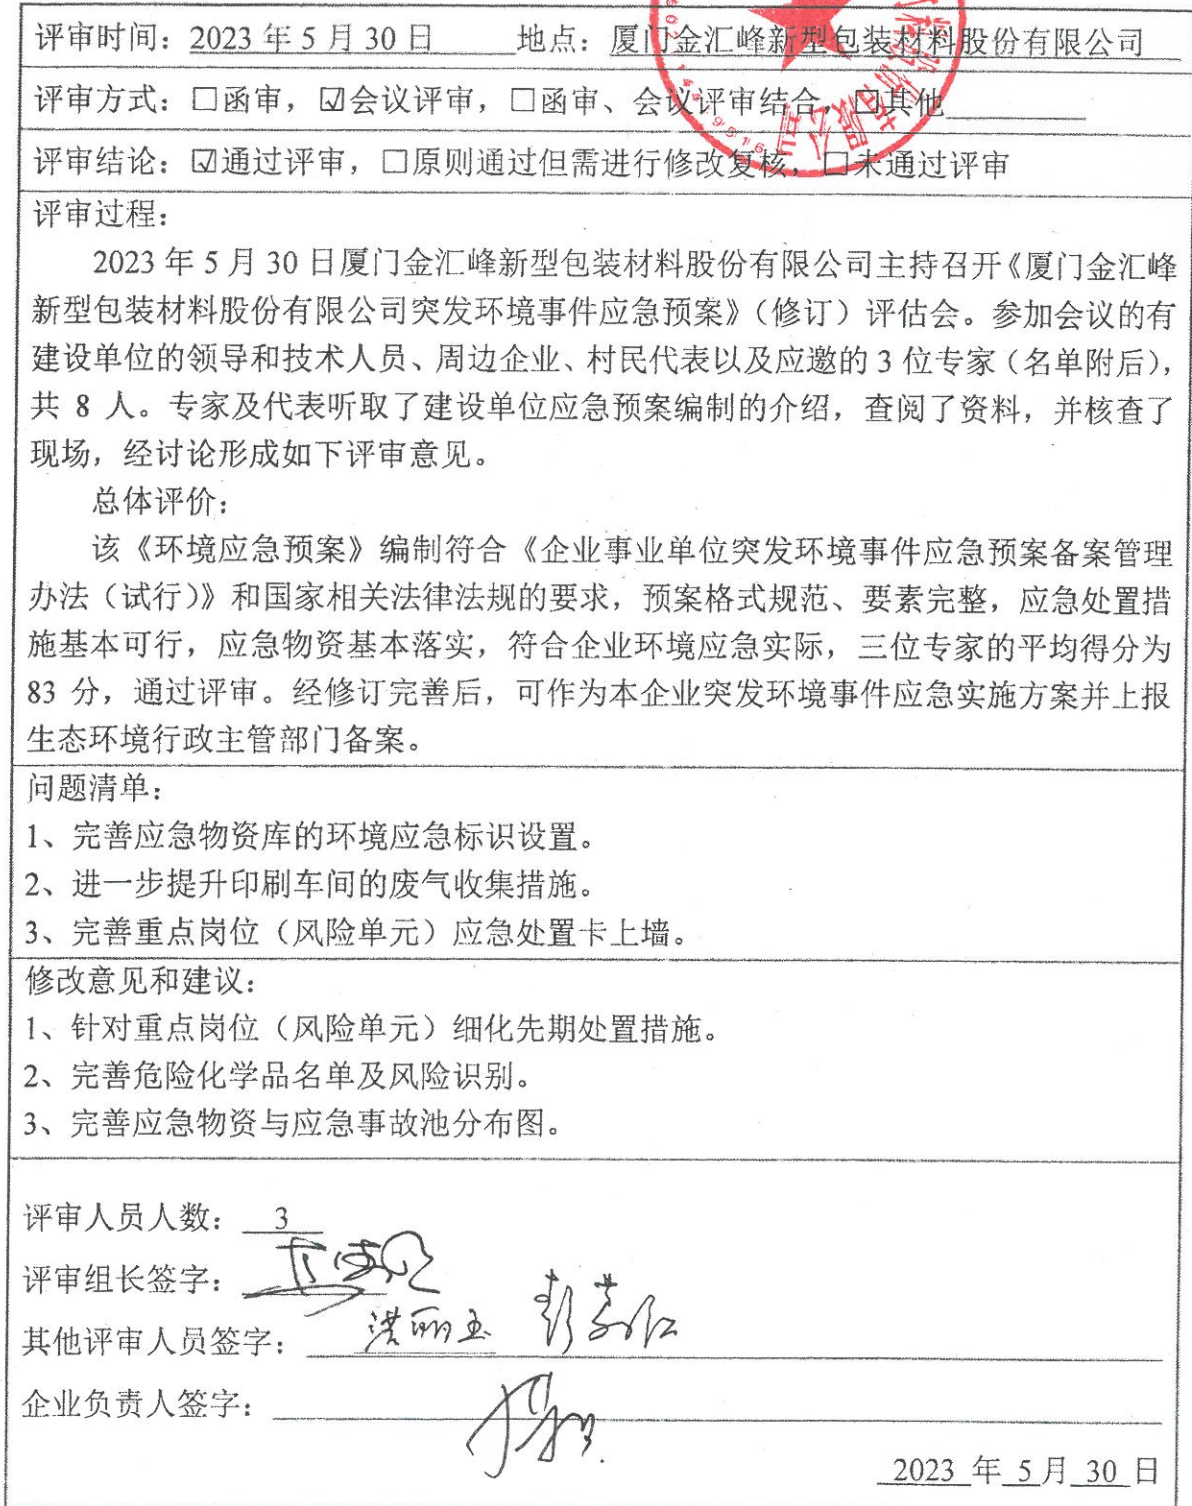 评审时间：2023 年 5 月 30 日 地点：厦门金汇峰新型包装材料股份有限公司
评审方式：☐函审，☑会议评审，☐函审、会议评审结合，☐其他
评审结论：☑通过评审，☐原则通过但需进行修改复核，☐未通过评审
评审过程：
2023 年 5 月 30 日厦门金汇峰新型包装材料股份有限公司主持召开《厦门金汇峰
新型包装材料股份有限公司突发环境事件应急预案》（修订）评估会。参加会议的有
建设单位的领导和技术人员、周边企业、村民代表以及应邀的 3 位专家（名单附后），
共 8 人。专家及代表听取了建设单位应急预案编制的介绍，查阅了资料，并核查了
现场，经讨论形成如下评审意见。
总体评价：
该《环境应急预案》编制符合《企业事业单位突发环境事件应急预案备案管理
办法（试行）》和国家相关法律法规的要求，预案格式规范、要素完整，应急处置措
施基本可行，应急物资基本落实，符合企业环境应急实际，三位专家的平均得分为
83 分，通过评审。经修订完善后，可作为本企业突发环境事件应急实施方案并上报
生态环境行政主管部门备案。
问题清单：
1、完善应急物资库的环境应急标识设置。
2、进一步提升印刷车间的废气收集措施。
3、完善重点岗位（风险单元）应急处置卡上墙。
修改意见和建议：
1、针对重点岗位（风险单元）细化先期处置措施。
2、完善危险化学品名单及风险识别。
3、完善应急物资与应急事故池分布图。
评审人员人数： 3
评审组长签字：
其他评审人员签字： 洪丽玉
企业负责人签字：
2023 年 5 月 30 日